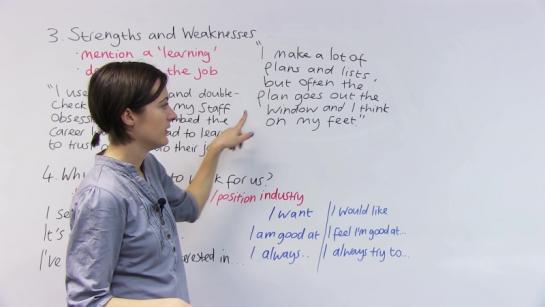 3. Strengths and Weaknesses
· mention a 'learning'
the job
"I use and double-
check my staff
obsess the
career to learn
to trust do their
"I make a lot of
plans and lists,
but often the
plan goes out the
window and I think
on my feet"
4. Why k for us?
/position industry
I se
It's
I've rested in...
I want | I would like
I am good at | I feel I'm good at...
I always.. | I always try to...